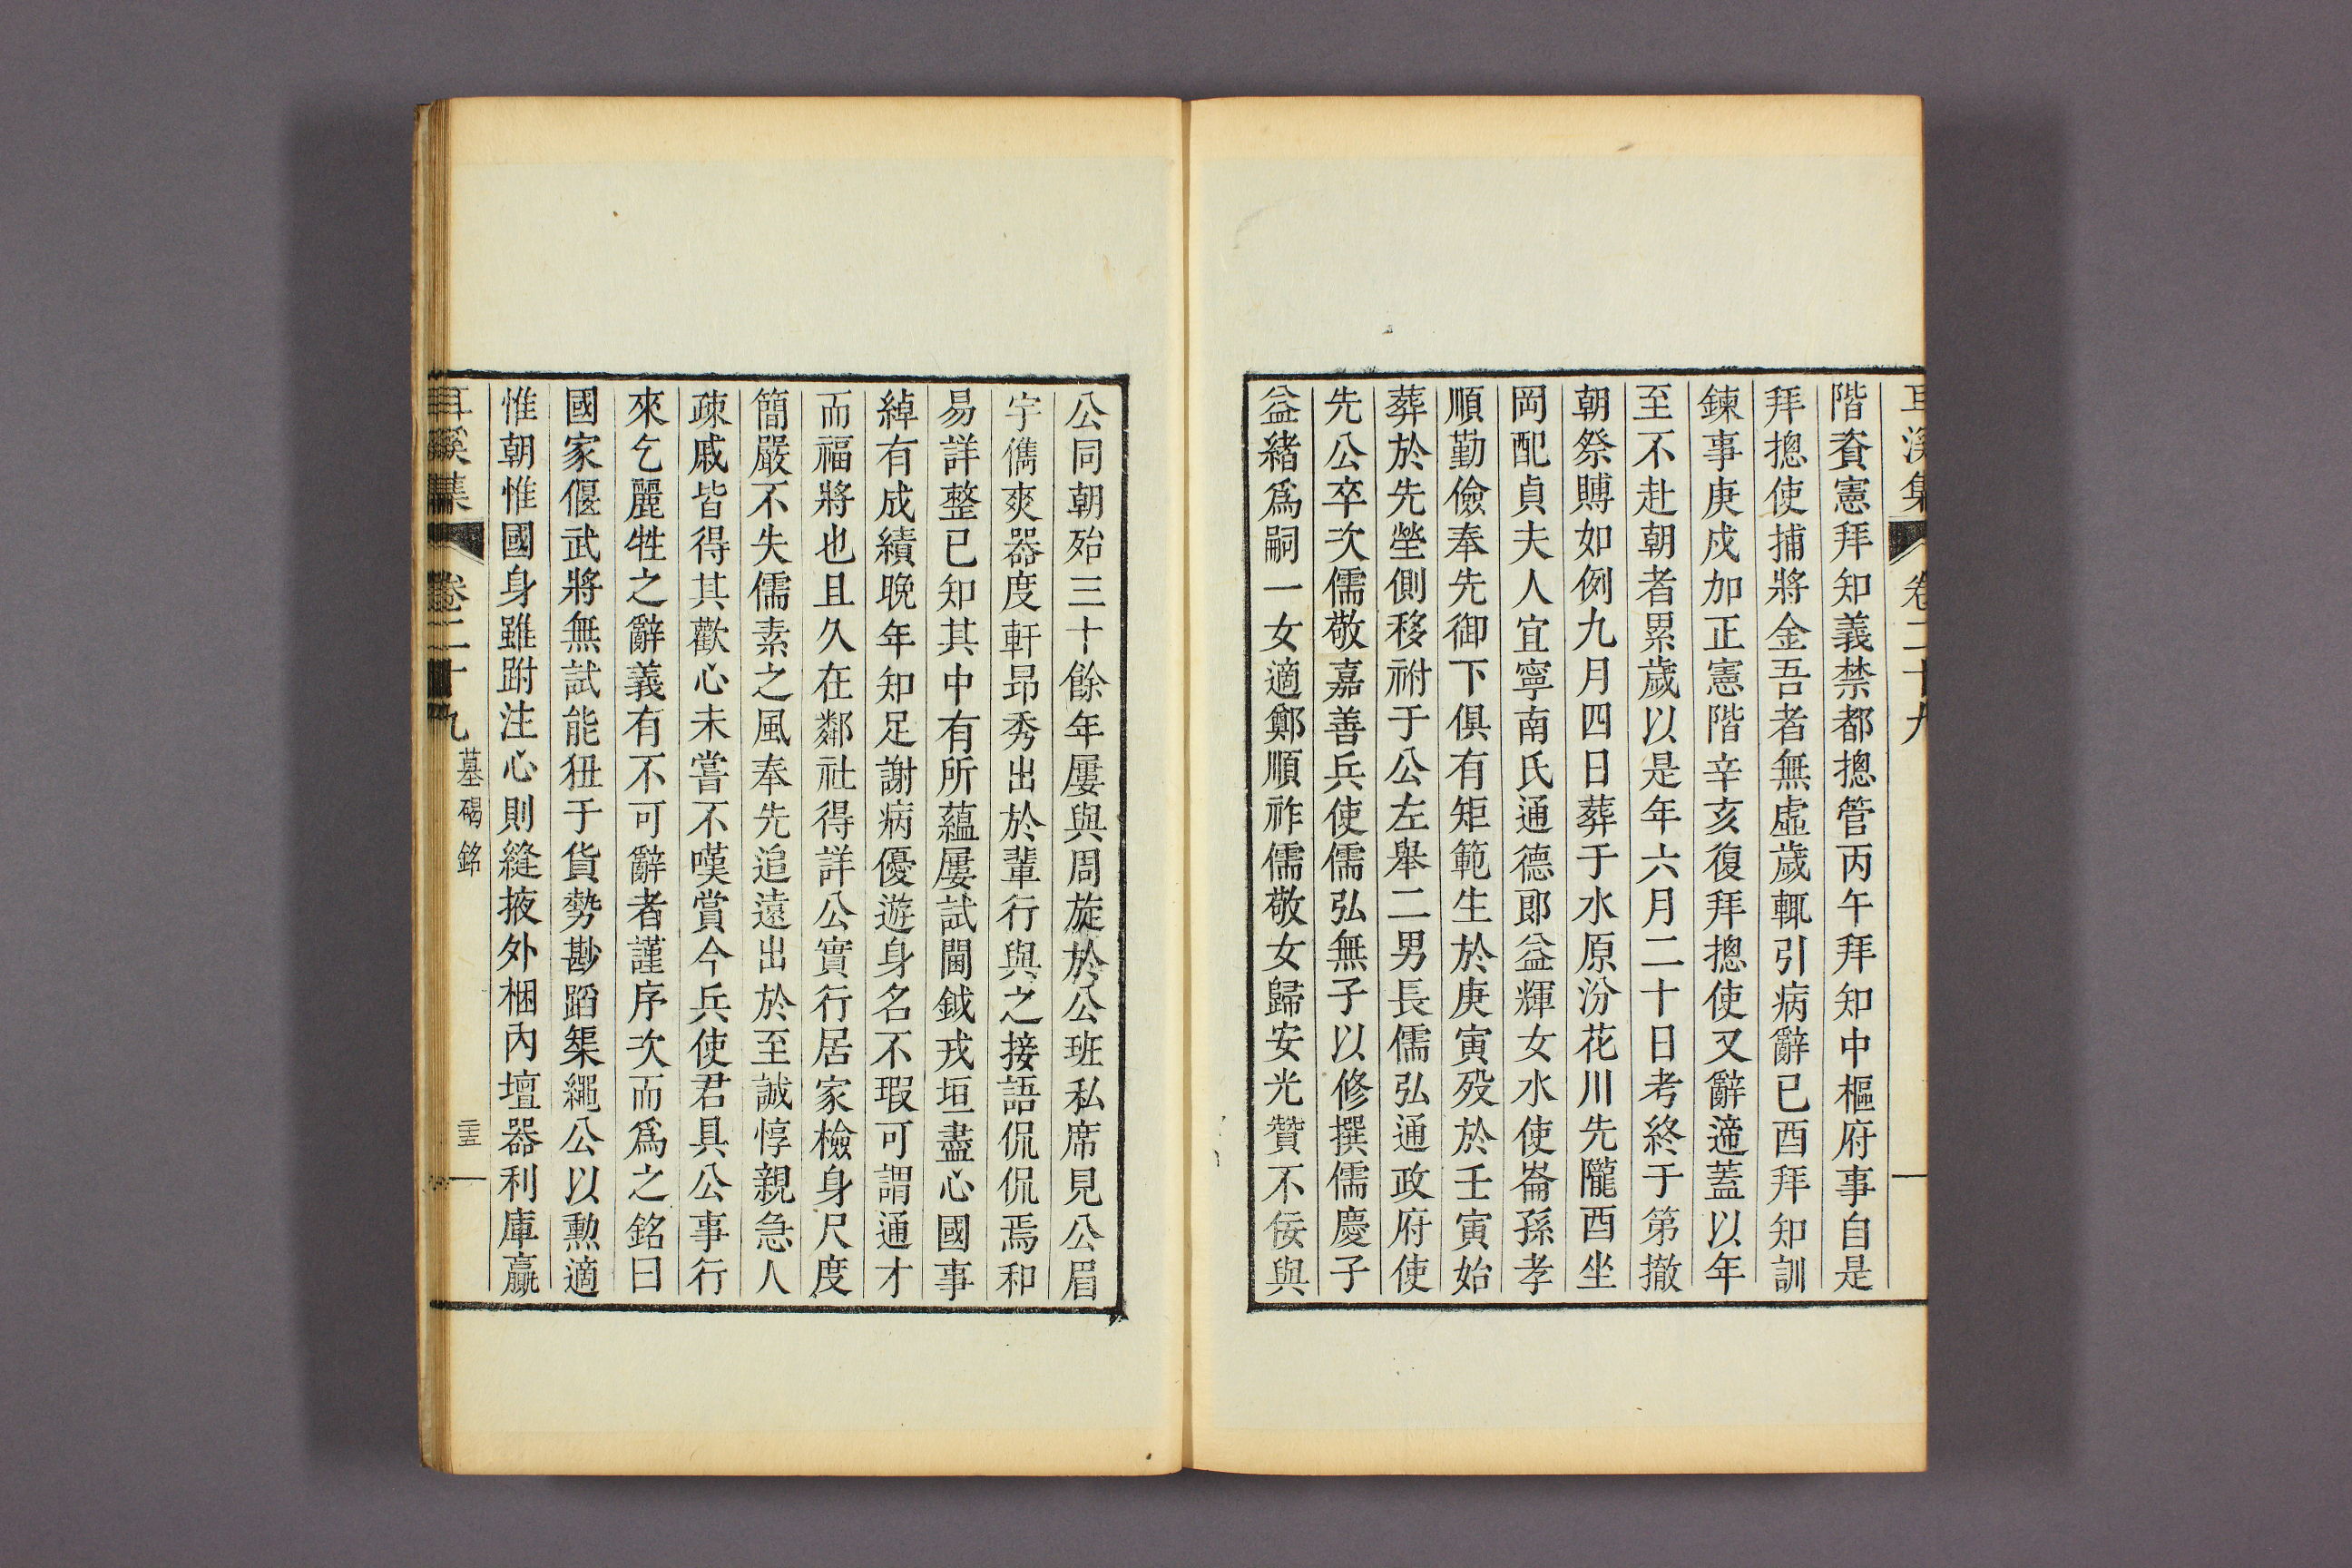 耳溪集 卷二十九
階資憲拜知義禁都摠管丙午拜知中樞府事自是
拜摠使捕將金吾者無虛歲輒引病辭已酉拜知訓
鍊事庚戌加正憲階辛亥復拜摠使又辭遞蓋以年
至不赴朝者累歲以是年六月二十日考終于第撤
朝祭賻如例九月四日葬于水原汾花川先隴酉坐
岡配貞夫人宜寧南氏通德郞益輝女水使崙孫孝
順勤儉奉先御下俱有矩範生於庚寅歿於壬寅始
葬於先塋側移祔于公左舉二男長儒弘通政府使
先公卒次儒敬嘉善兵使儒弘無子以修撰儒慶子
益緖爲嗣一女適鄭順祚儒敬女歸安光贊不佞與
公同朝殆三十餘年屢與周旋於公班私席見公眉
宇儁爽器度軒昂秀出於輩行與之接語侃侃焉和
易詳整已知其中有所蘊屢試閫鉞戎垣盡心國事
綽有成績晩年知足謝病優遊身名不瑕可謂通才
而福將也且久在鄰社得詳公實行居家檢身尺度
簡嚴不失儒素之風奉先追遠出於至誠惇親急人
疎戚皆得其歡心未嘗不嘆賞今兵使君具公事行
來乞麗牲之辭義有不可辭者謹序次而爲之銘曰
國家偃武將無試能狃于貨勢尠蹈榘繩公以勳適
惟朝惟國身雖跗注心則縫掖外梱內壇器利庫贏
耳溪集 卷二十九 墓碣銘 二十五